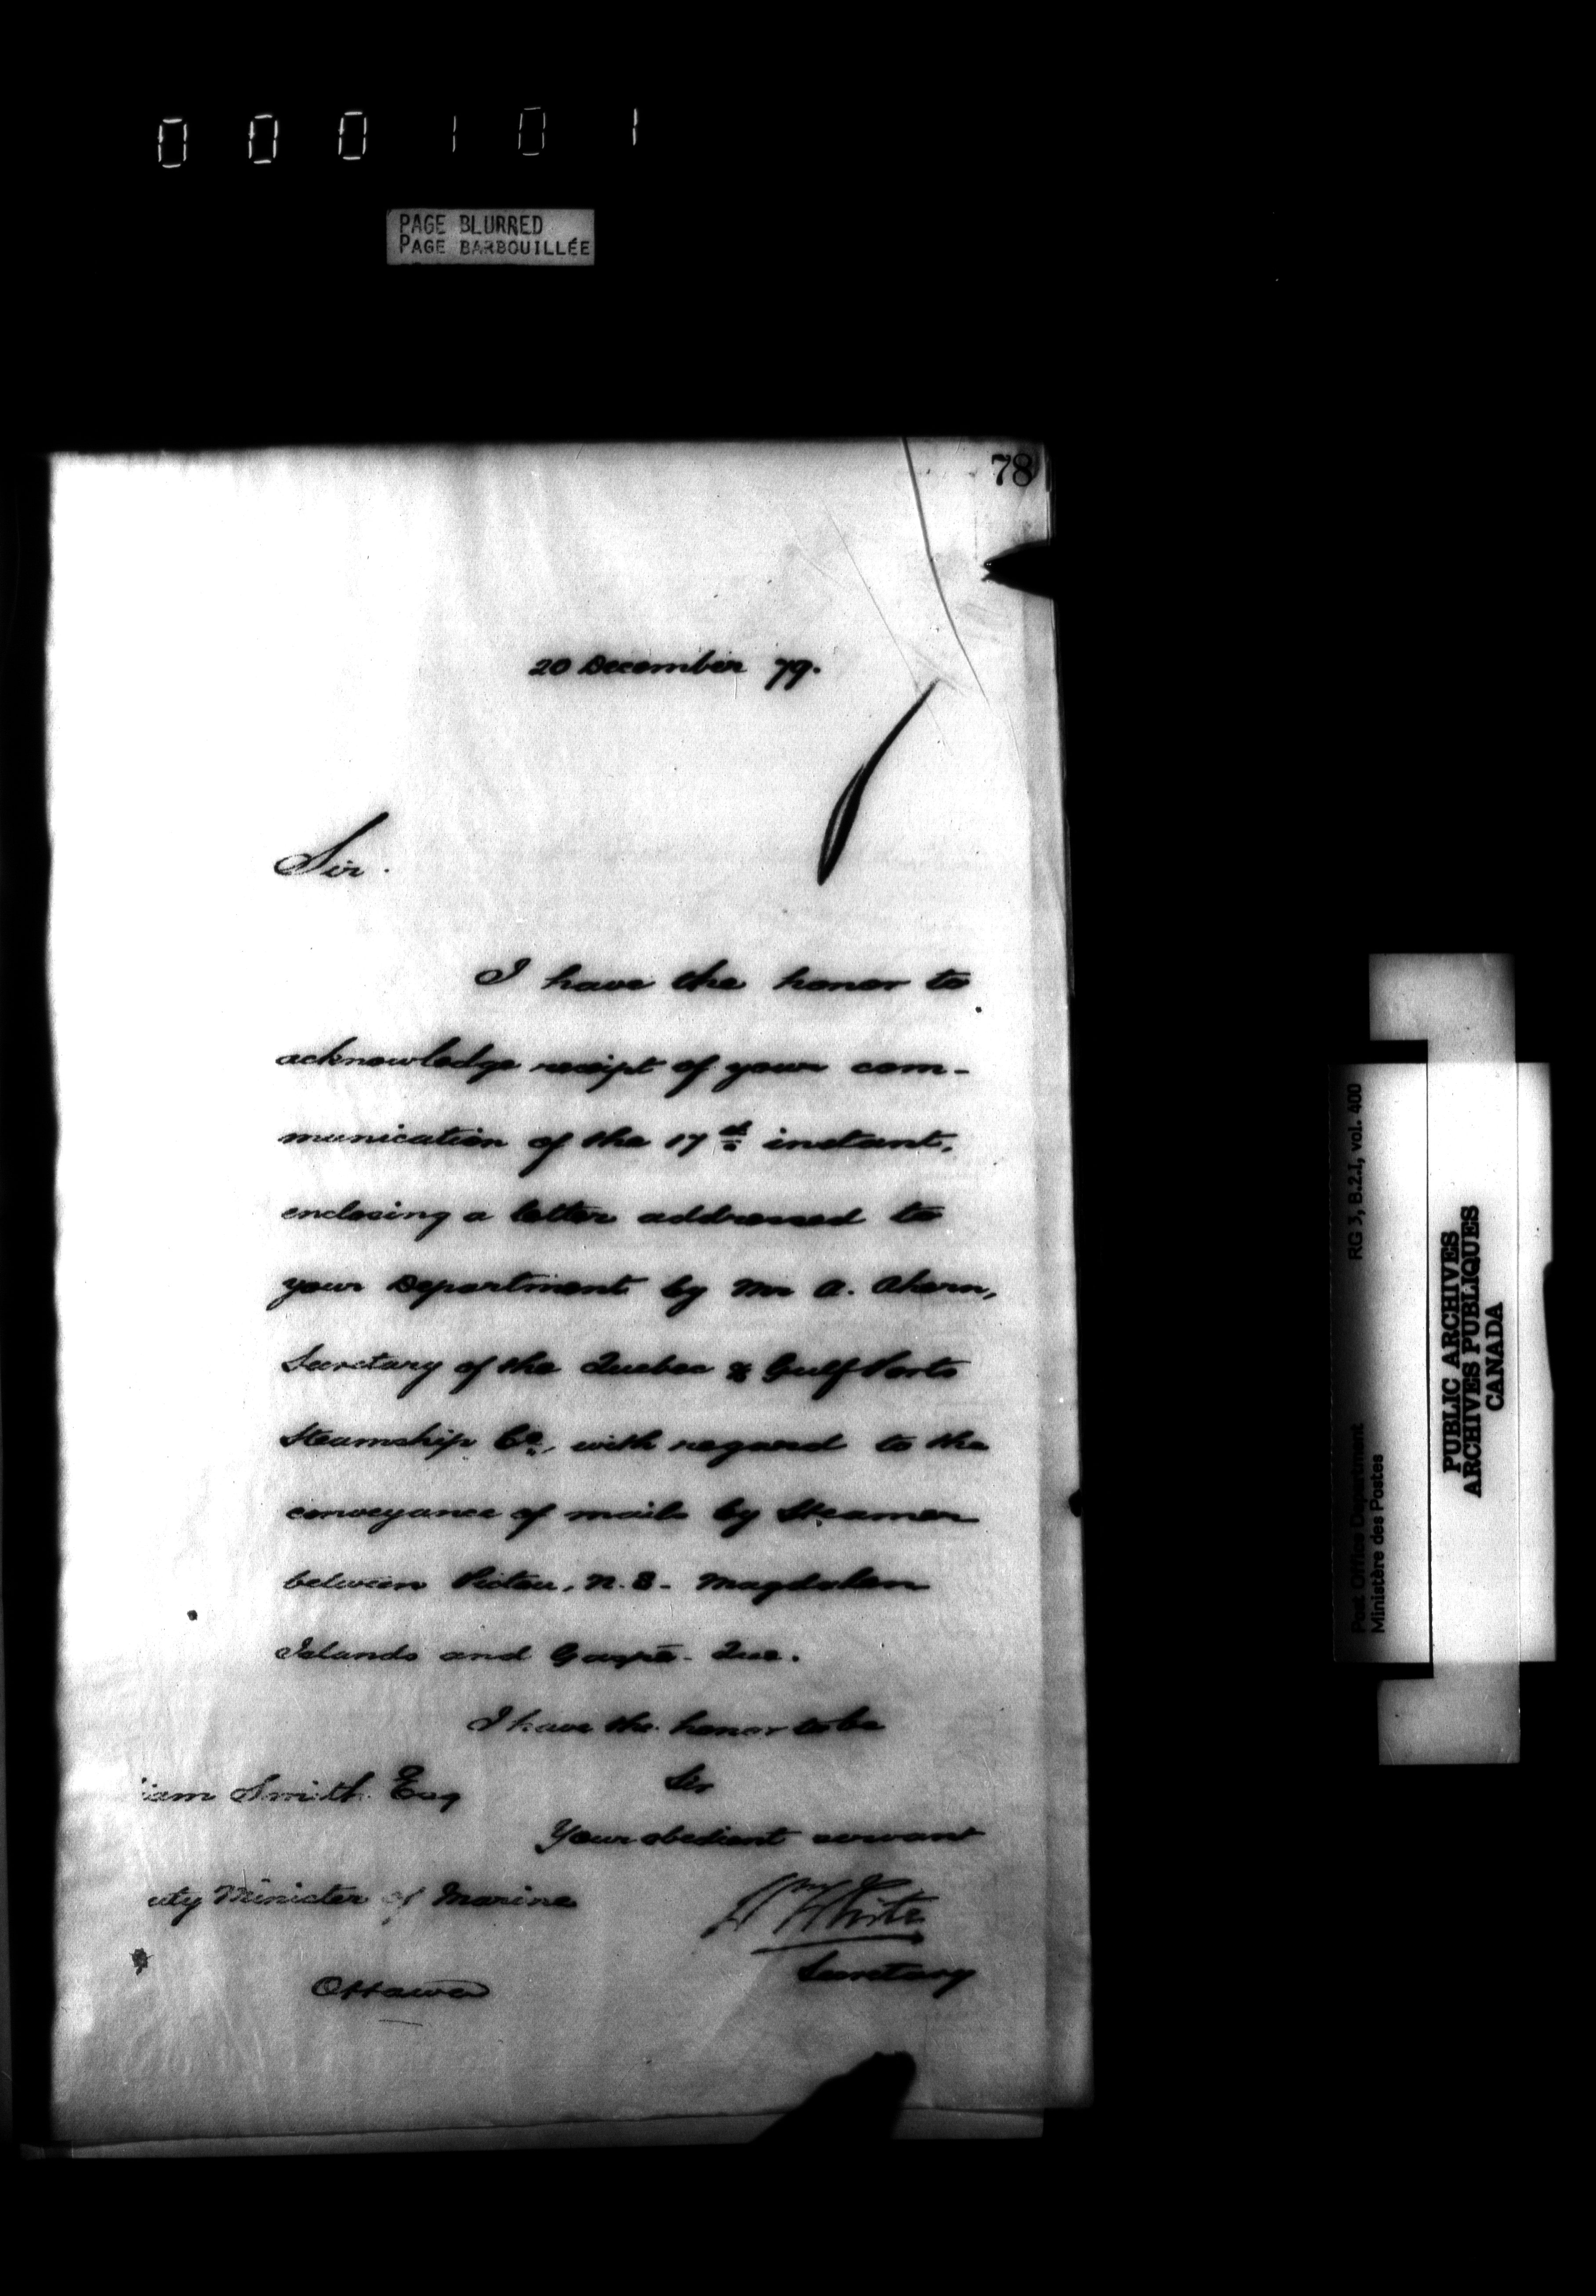 000101
PAGE BLURRED
PAGE BARBOUILLÉE
78
20 December 79.
Sir.
I have the honor to
acknowledge receipt of your com-
munication of the 17th instant,
enclosing a letter addressed to
your Department by Mr A. Ahern,
Secretary of the Quebec & Gulf Ports
Steamship Co, with regard to the
conveyance of mails by Steamer
between Pictou, N.S. Magdalen
Islands and Gaspé - Que.
I have the honor to be
Sir
iam Smith Esq
Your obedient servant
uty Minister of Marine
Wm White
Secretary
Ottawa
RG 3, B.2.I, vol. 400
Post Office Department
Ministère des Postes
PUBLIC ARCHIVES
ARCHIVES PUBLIQUES
CANADA